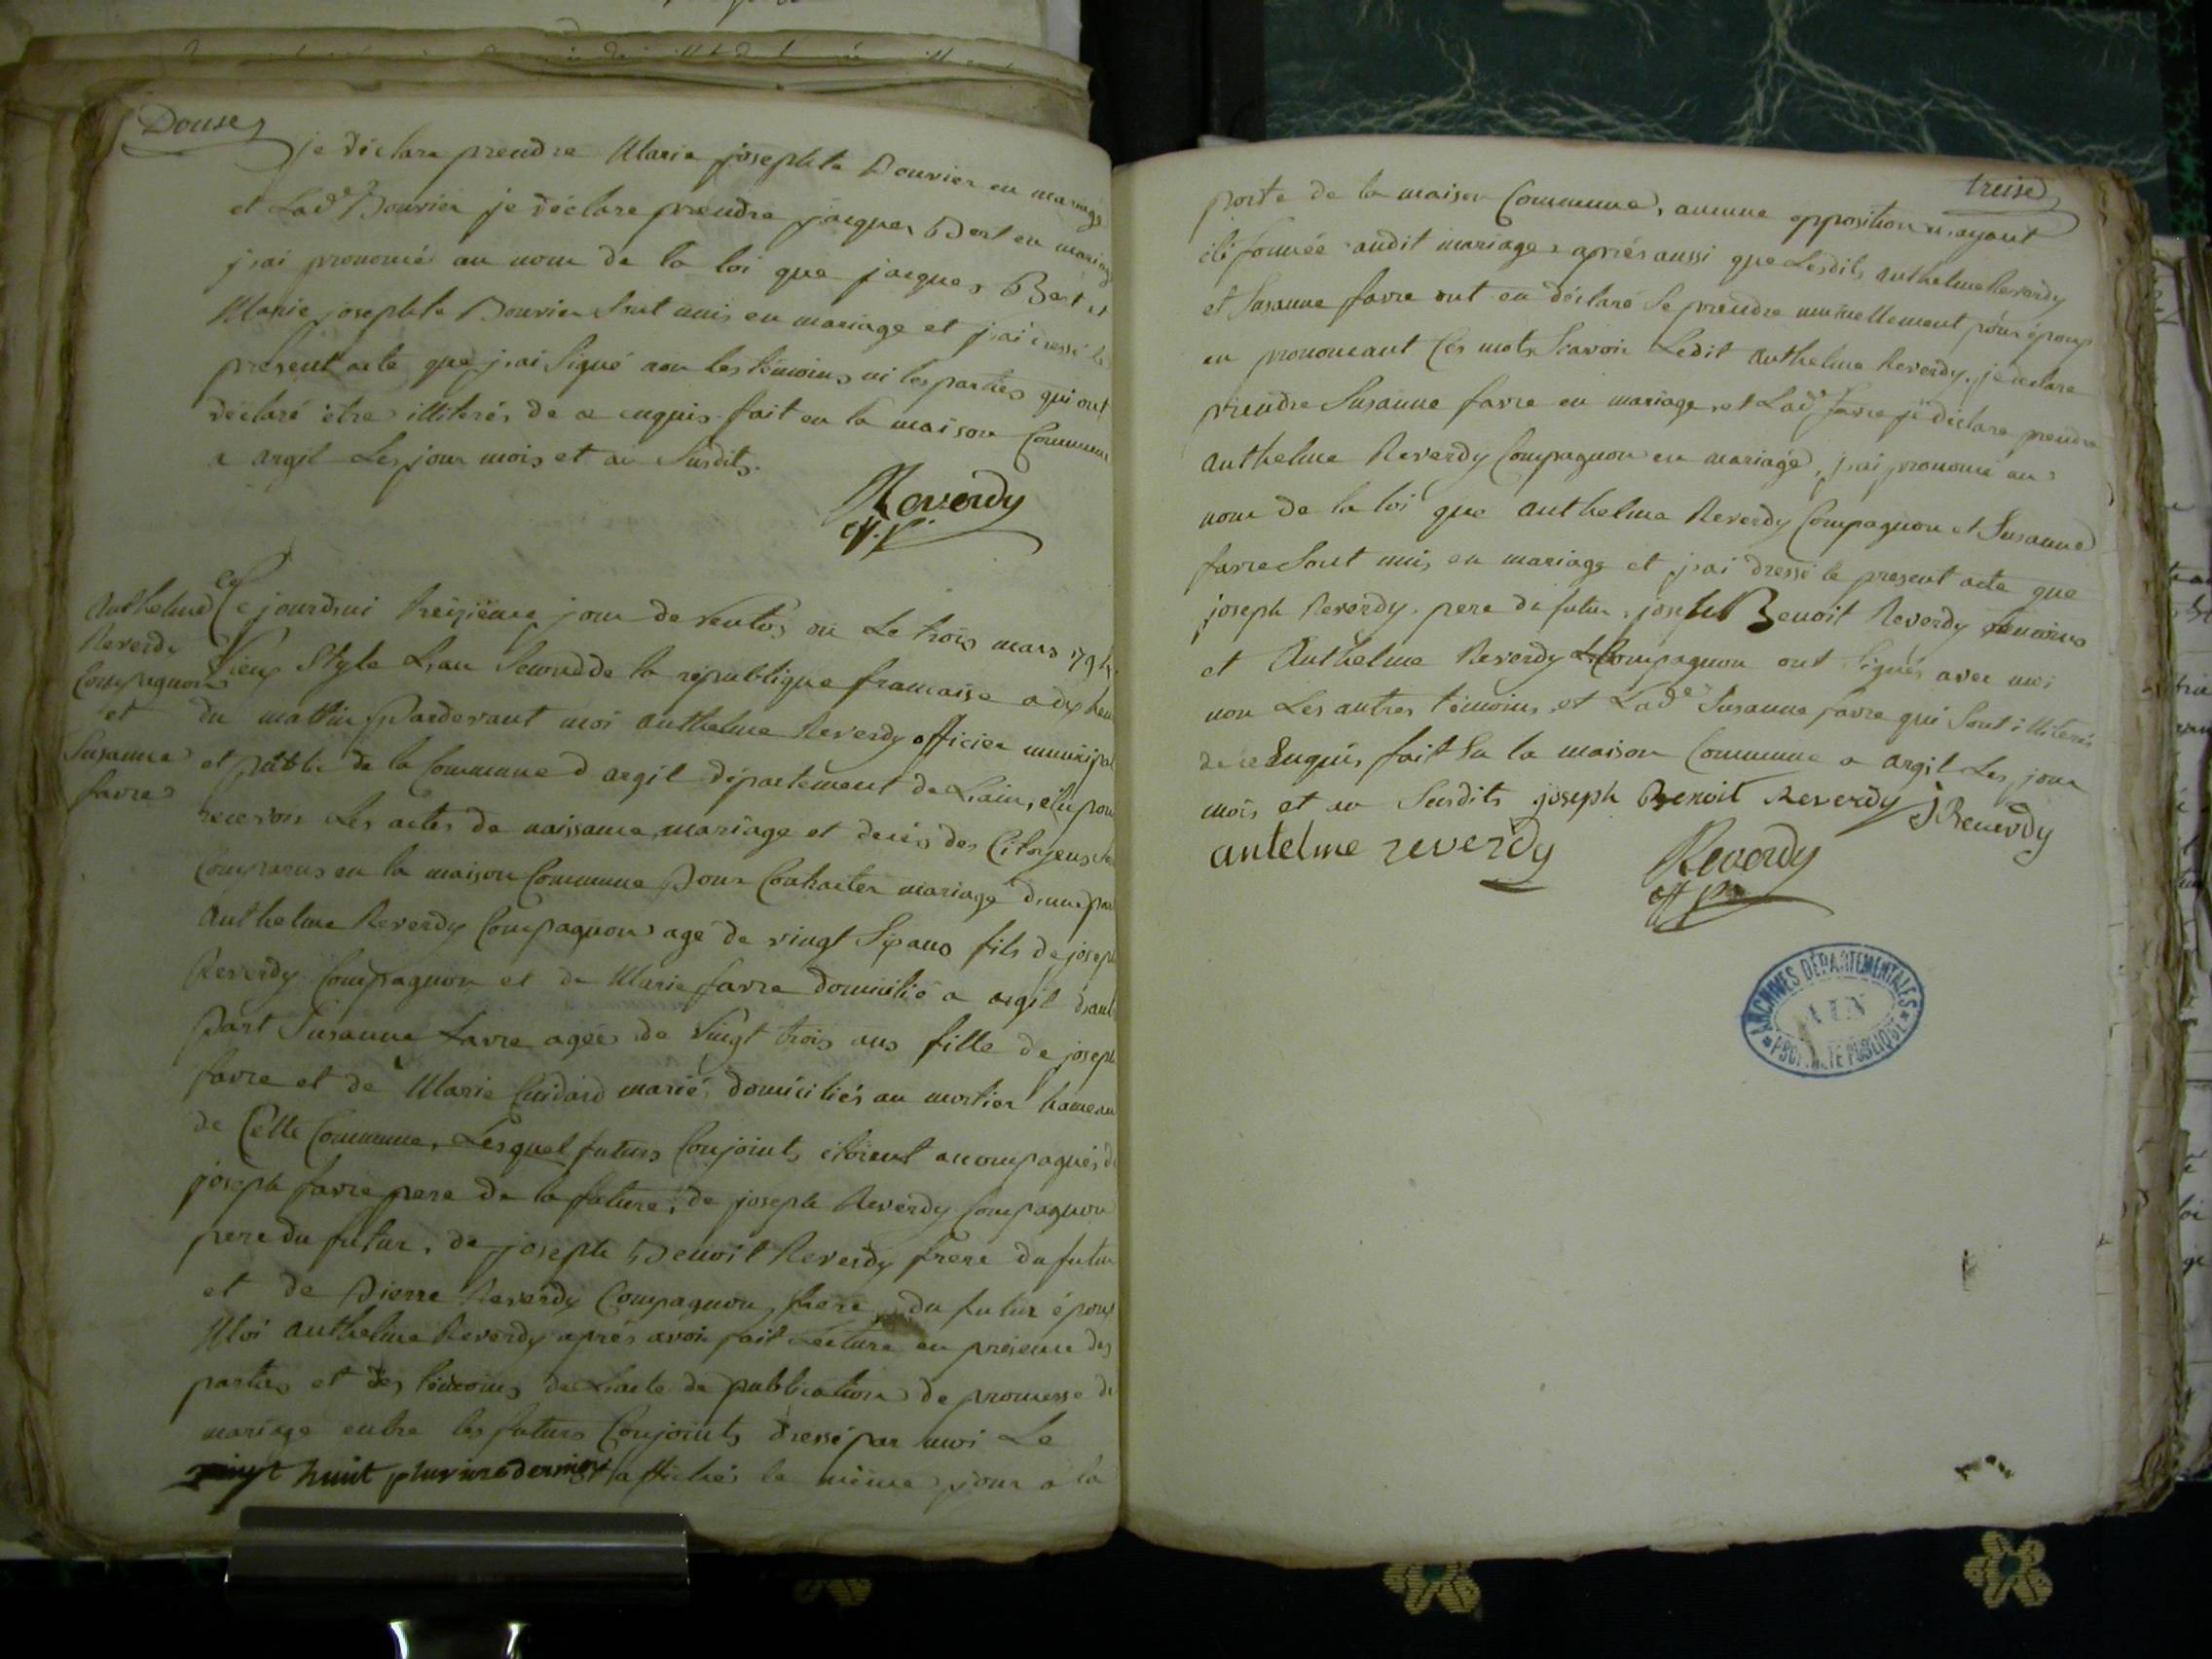 Douse
je déclare prendre Marie josephte Bouvier en mariage
et Lad.e Bouvier je déclare prendre jacques Bert en mariage
j'ai prononcé au nom de la loi que jacques Bert et
Marie josephte Bouvier Sont unis en mariage et j'ai dressé le
present acte que j'ai Signé non les témoins ni les parties qui ont
déclaré être illiterés de ce enquis fait en la maison Commune
a argil Les jour mois et an Susdits.
Reverdy
Anthelme
Reverdy
Compagnon
et
Susanne
favre
Ce jourdhui treizième jour de ventôs ou Le trois mars 1794
Vieux Style L'an Second de la république francaise a dix heu
du mattin Pardevant moi anthelme Reverdy officier municipal
et public de la Commune d'argil département de L'ain, élu pour
recevoir Les actes de naissance, mariage et décès des Citoyens
Comparus en la maison Commune Pour Contracter mariage d'une part
Anthelme Reverdy Compagnon agé de vingt Six ans fils de joseph
Reverdy Compagnon et de Marie favre domicilié a argil d'aut
Part Susanne favre agée de Vingt trois ans fille de joseph
favre et de Marie Cuidard mariés domiciliés au mortier hameau
de Cette Commune, Lesquel futurs Conjoints étoient acompagnés de
joseph favre pere de la future, de joseph Reverdy Compagnon
pere du futur, de joseph Benoit Reverdy frere du futur
et de Pierre Reverdy Compagnon, frere du futur époux
Moi anthelme Reverdy après avoir fait Lecture en présence des
parties et des témoins de L'acte de publication de promesse de
mariage entre les futurs Conjoints dressé par moi Le
vingt huit pluviose dernier affiché le même jour a la
treise
porte de la maison Commune, aucune opposition n'ayant
été formée audit mariage, après aussi que Lesdits anthelme Reverdy
et Susanne favre ont eu déclaré Se prendre mutuellement pour époux
en prononcant Ces mots Scavoir Ledit anthelme Reverdy, je déclare
prendre Susanne favre en mariage, et Lad.e favre je déclare prendre
Anthelme Reverdy Compagnon en mariage, j'ai prononcé au
nom de la loi que anthelme Reverdy Compagnon et Susanne
favre Sont unis en mariage et j'ai dressé le present acte que
joseph Reverdy pere du futur, joseph Benoit Reverdy témoins
et Anthelme Reverdy Compagnon ont Signés avec moi
non Les autres témoins et Lad.e Susanne favre qui Sont illiterés
de ce Enquis, fait En la maison Commune a argil Les jour
mois et an Susdits joseph Benoit Reverdy J Reverdy
antelme reverdy
Reverdy
off p
ARCHIVES DÉPARTEMENTALES
AIN
PROPRIÉTÉ PUBLIQUE